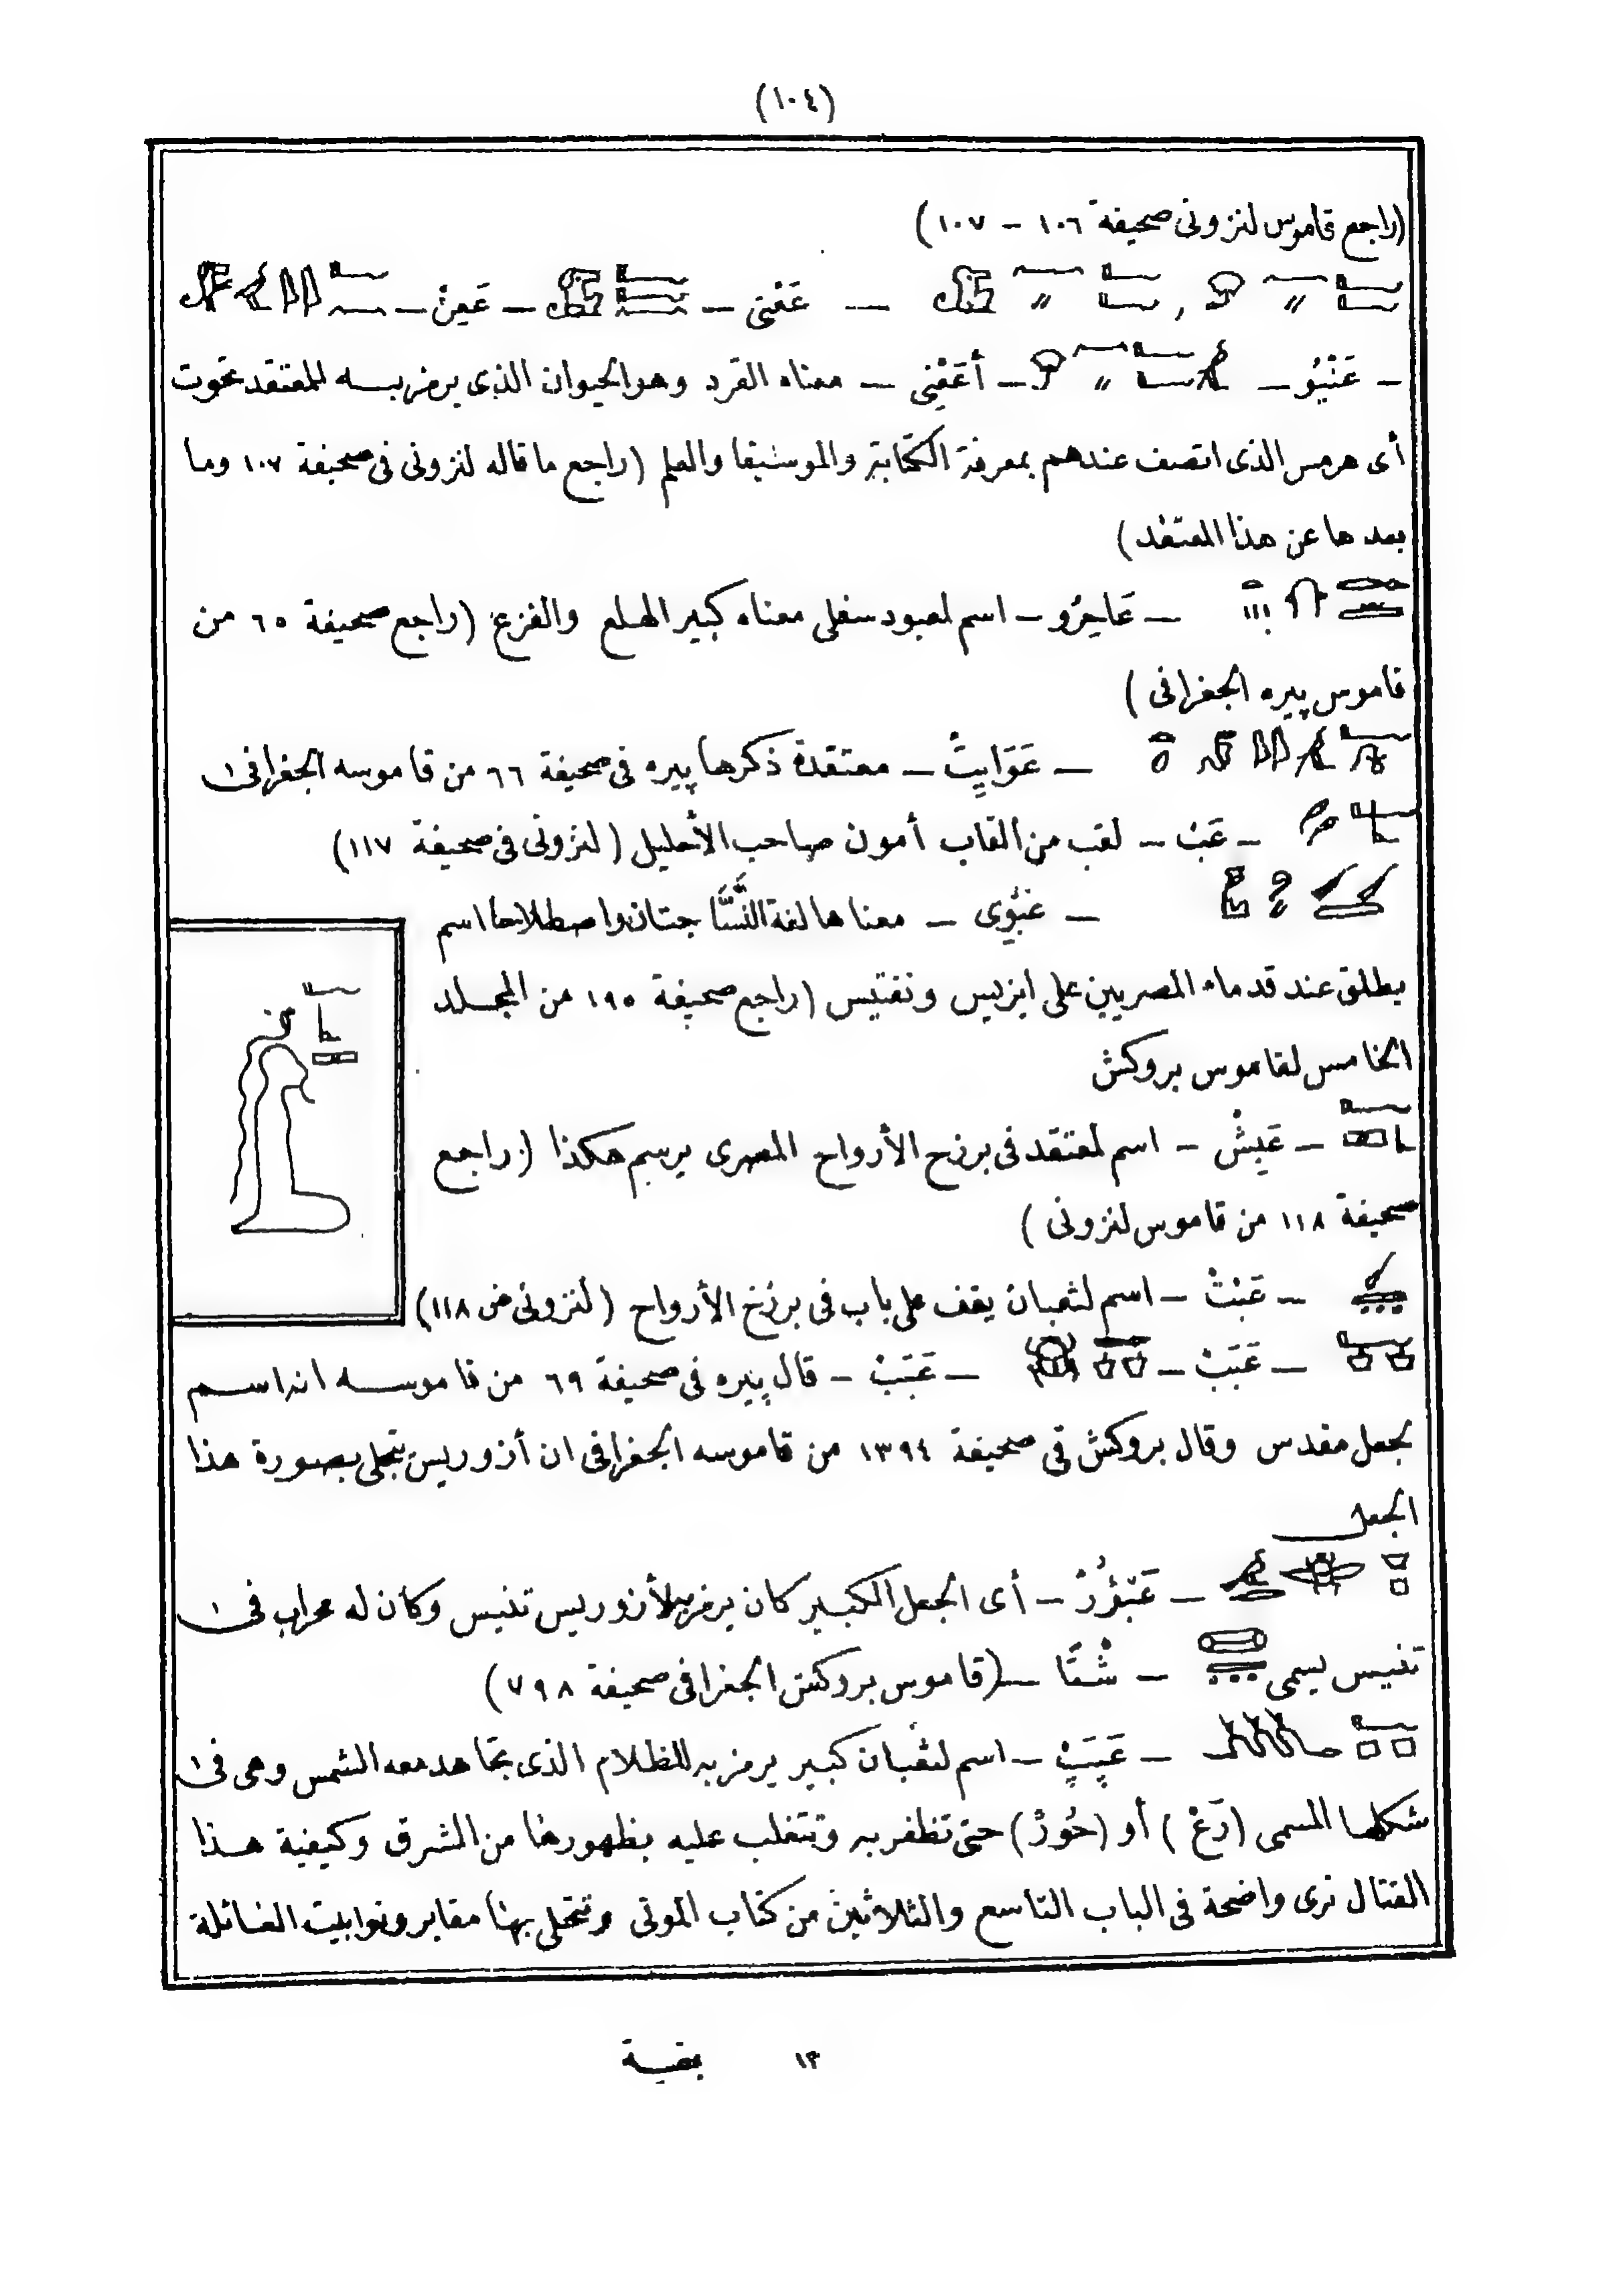 (١٠٤)
(راجع قاموس لنزونى صحيفة ١٠٦ - ١٠٧)
— عَعْنِى — — عَعِنْ —
— عَنْيُو — — أعَعْنِى — معناه القرد وهو الحيوان الذى يرمز به للمعتقد تحوت
أى هرمس الذى اتصف عندهم بمعرفة الكتابة والموسيقا والعلم (راجع ما قاله لنزونى فى صحيفة ١٠٧ وما
بعدها عن هذا المعتقد)
— اسم لمعبود سفلى معناه كبير الهلع والفزع (راجع صحيفة ٦٥ من
قاموس پيره الجغرافى)
— عَوَايِتْ — معتقدة ذكرها پيره فى صحيفة ٦٦ من قاموسه الجغرافى
— عَبْ — لقب من ألقاب أمون صاحب الأحليل (لنزونى فى صحيفة ١١٧)
— عَبْوِى — معناها لغة جتان واصطلاحا اسم
يطلق عند قدماء المصريين على ايزيس ونفتيس (راجع صحيفة ١٩٥ من المجلد
الخامس لقاموس بروكش
— عَبِشْ — اسم لمعتقد فى برزخ الأرواح المصرى يرسم هكذا (راجع
صحيفة ١١٨ من قاموس لنزونى)
— عَبْتْ — اسم لثعبان يقف على باب فى برزخ الأرواح (لنزونى ص ١١٨)
— عَبَبْ — — عَبَبْ — قال پيره فى صحيفة ٦٩ من قاموسه انه اسم
لجعل مقدس وقال بروكش فى صحيفة ١٣٩٤ من قاموسه الجغرافى ان أزوريس تجلى بصورة هذا
الجعل
— عَبْؤُرْ — أى الجعل الكبير كان يرمز به لأزوريس تنيس وكان له محراب فى
تنيس يسمى — شْتًا — (قاموس بروكش الجغرافى صحيفة ٧٩٨)
— عَپَپْ — اسم لثعبان كبير يرمز به للظلام الذى تجاهد معه الشمس وهى فى
شكلها المسمى (رَعْ) أو (حُورْ) حتى تظفر به وتتغلب عليه بظهورها من الشرق وكيفية هذا
القتال ترى واضحة فى الباب التاسع والثلاثين من كتاب الموتى وتتحلى بها مقابر وتوابيت العائلة
١٣ بقية